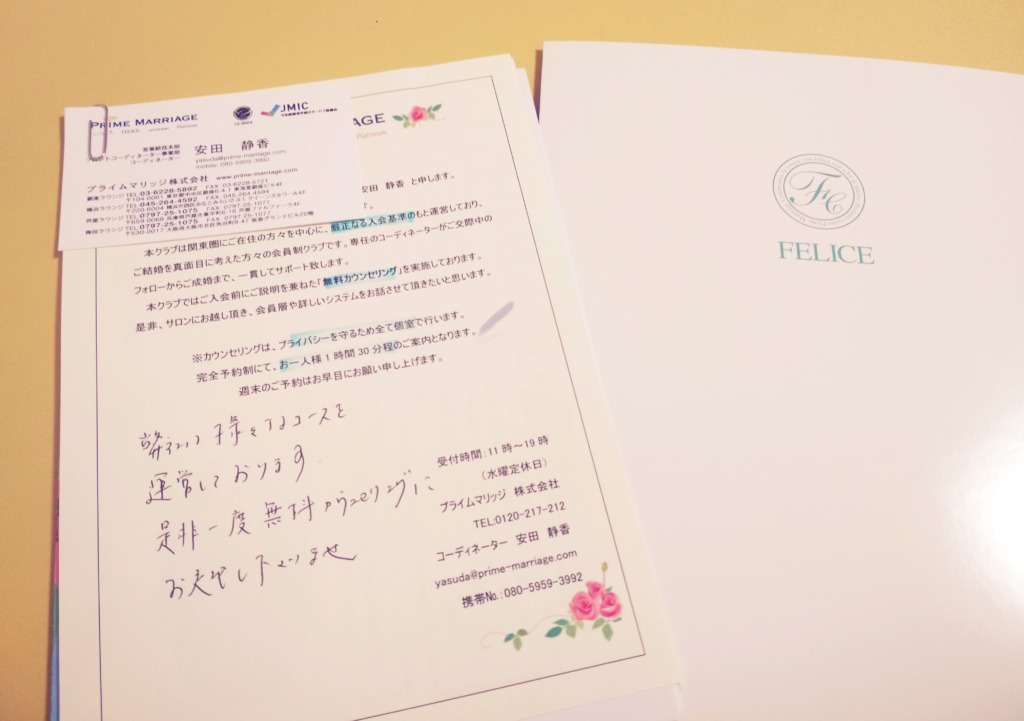 PRIME MARRIAGE
JMIC
営業統括本部
コーディネーター
安田 静香
yasuda@prime-marriage.com
mobile. 080-5959-3992
プライムマリッジ株式会社 www.prime-marriage.com
銀座ラウンジ TEL 03-6228-5892 FAX 03-6228-5721
横浜ラウンジ TEL 045-264-4592 FAX 045-264-4594
芦屋ラウンジ TEL 0797-25-1075 FAX 0797-25-1077
梅田ラウンジ TEL 0797-25-1075 FAX 0797-25-1077
AGE
Platinum
安田 静香 と申します。
す。
本クラブは関東圏にご在住の方々を中心に、厳正なる入会基準のもと運営しており、
ご結婚を真面目に考えた方々の会員制クラブです。専任のコーディネーターがご交際中の
フォローからご成婚まで、一貫してサポート致します。
本クラブではご入会前にご説明を兼ねた「無料カウンセリング」を実施しております。
是非、サロンにお越し頂き、会員層や詳しいシステムをお話させて頂きたいと思います。
※カウンセリングは、プライバシーを守るため全て個室で行います。
完全予約制にて、お一人様1時間30分程のご案内となります。
週末のご予約はお早目にお願い申し上げます。
様々なコースを
運営しております
是非一度無料カウンセリングに
お越し下さいませ
受付時間:11時~19時
(水曜定休日)
プライムマリッジ 株式会社
TEL:0120-217-212
コーディネーター 安田 静香
yasuda@prime-marriage.com
携帯No.:080-5959-3992
FC
FELICE